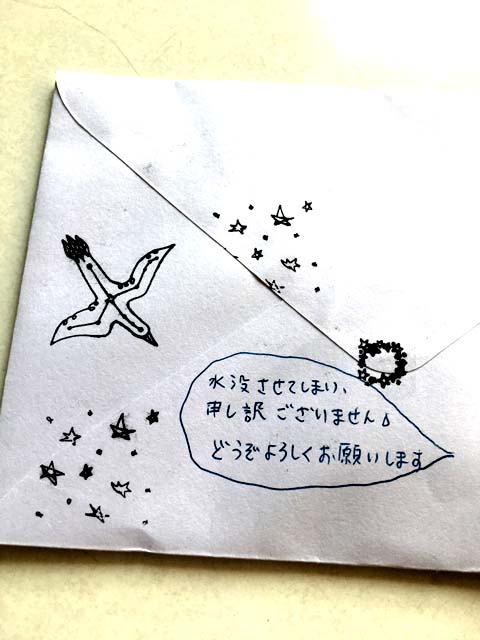 水没させてしまい、
申し訳ございません。
どうぞよろしくお願いします